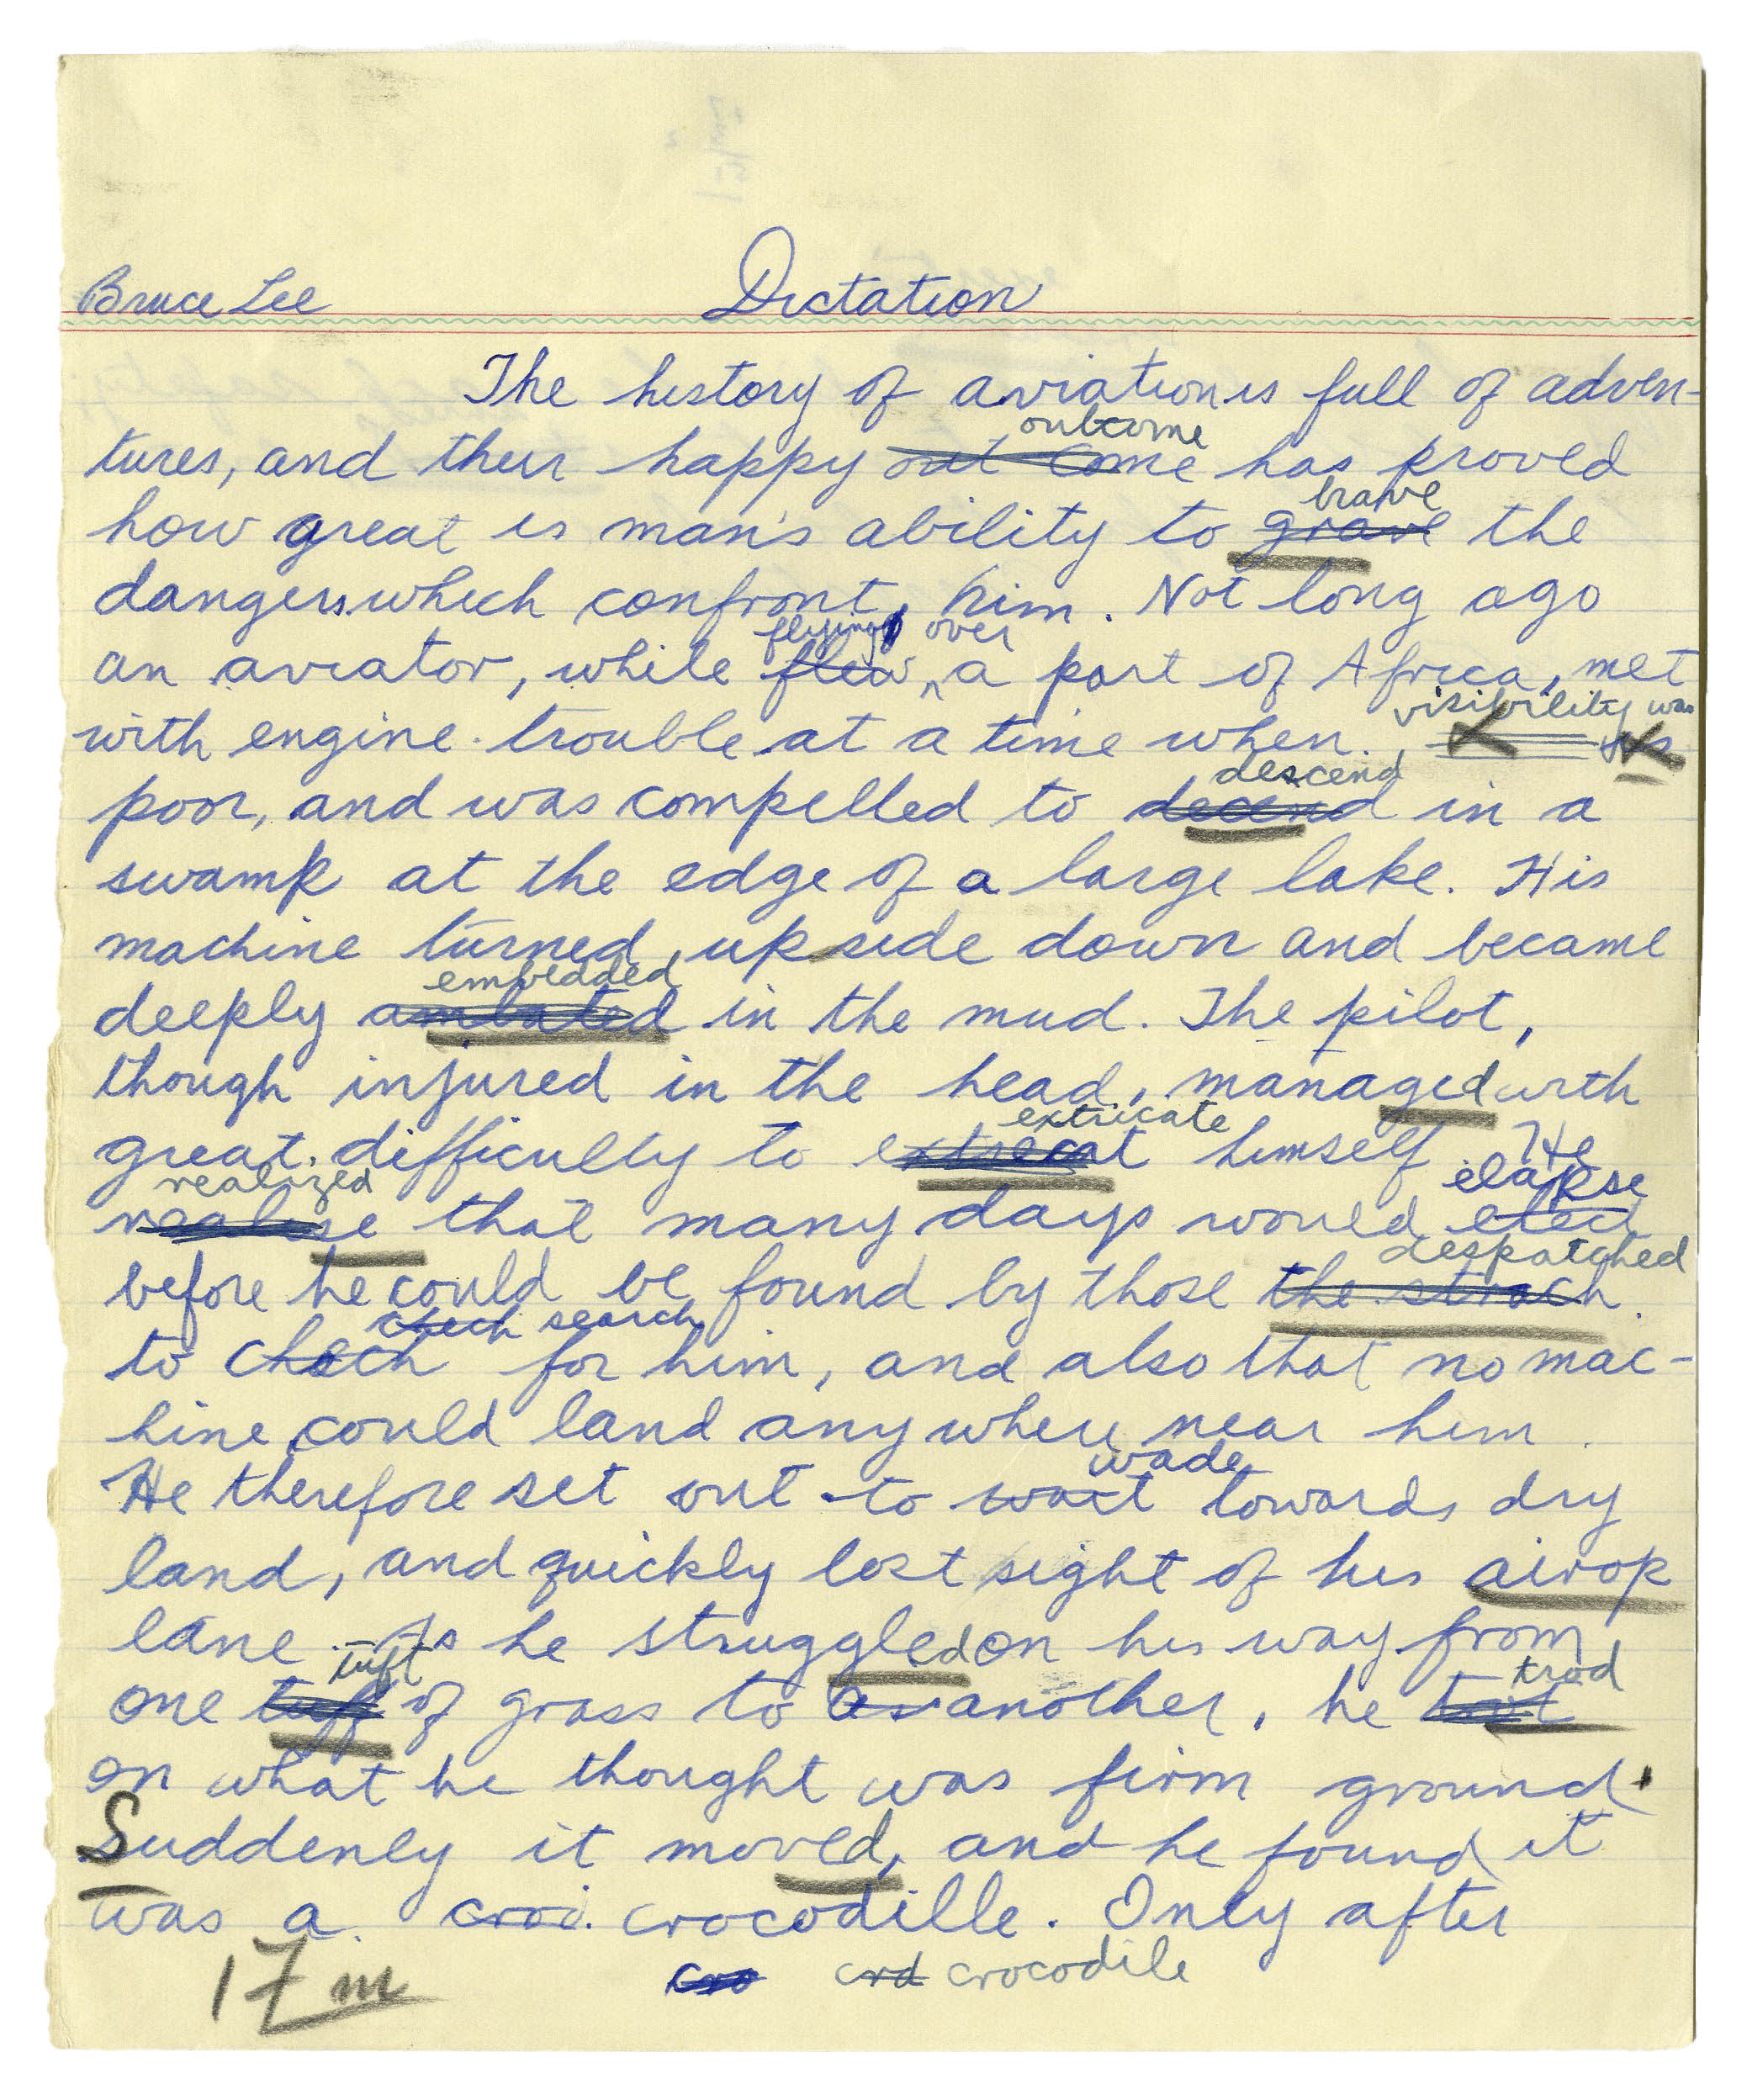 Bruce Lee Dictation
The history of aviation is full of adven-
outcome
tures, and their happy out come has proved
brave
how great is man's ability to grave the
dangers which confront, him. Not long ago
flying over
an aviator, while flew, a part of Africa, met
visibility was
with engine trouble at a time when.
descend
poor, and was compelled to decend in a
swamp at the edge of a large lake. His
machine turned upside down and became
embedded
deeply in the mud. The pilot,
though injured in the head, managed with
extricate
great difficulty to himself He
realized elapse
realise that many days would
despatched
before he could be found by those the strach.
check search
to check for him, and also that no mac-
hine could land anywhere near him.
wade
He therefore set out to wait towards dry
land, and quickly lost sight of his airop
lane. As he struggled on his way from
tuft trod
one tuff of grass to another, he
on what he thought was firm ground.
Suddenly it moved, and he found it
was a croi. crocodille. Only after
17 m cro crd crocodile